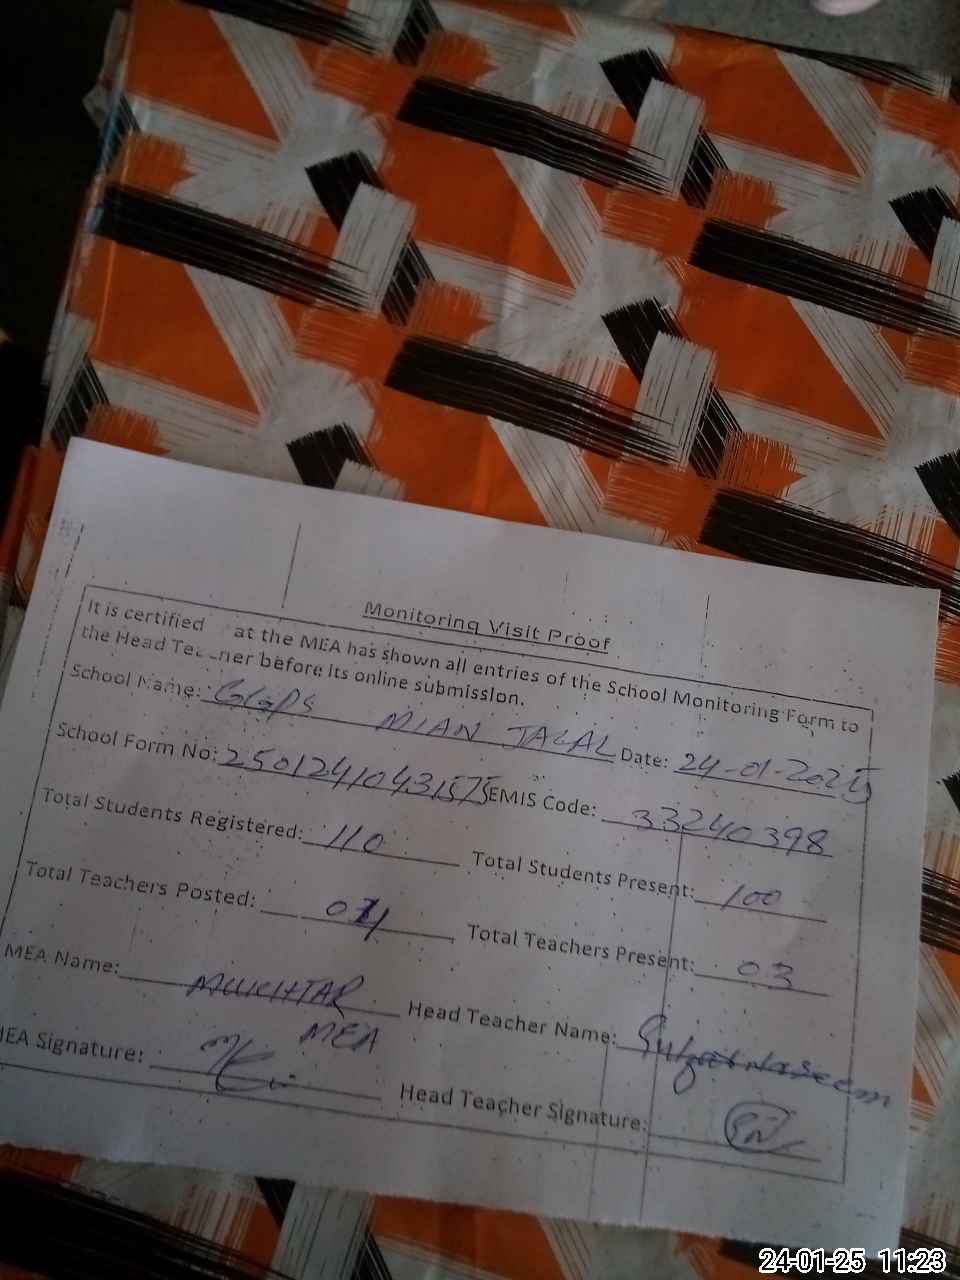 Monitoring Visit Proof
It is certified at the MEA has shown all entries of the School Monitoring Form to
the Head Te ner before its online submission.
School Name: GGPS MIAN JALAL Date: 24-01-2025
School Form No: 25012410431575 EMIS Code: 33240398
Total Students Registered: 110 Total Students Present: 100
Total Teachers Posted: 04 Total Teachers Present: 03
MEA Name: MUKHTAR Head Teacher Name: Naseem
MEA
EA Signature: Head Teacher Signature:
24-01-25 11:23